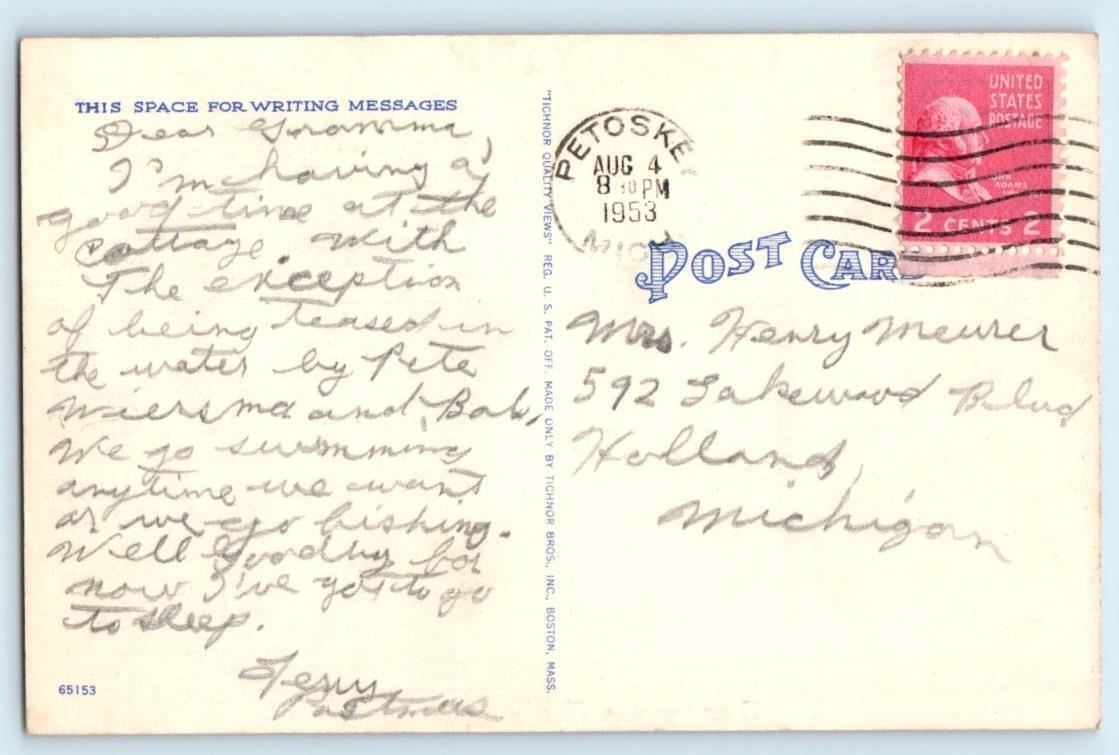 THIS SPACE FOR WRITING MESSAGES
Dear Gramma,
I'm having a
good time at the
cottage with
The exception
of being teased in
the water by Pete
Wiersma and Bob,
We go swimming
anytime we want
or we go fishing.
Well Goodby for
now I've got to go
to sleep.
Terry
65153
"TICHNOR QUALITY VIEWS" REG. U. S. PAT. OFF. MADE ONLY BY TICHNOR BROS., INC., BOSTON, MASS.
PETOSKEY
AUG 4
8 30 PM
1953
MICH
UNITED
STATES
POSTAGE
JOHN
ADAMS
2 CENTS 2
POST CARD
Mrs. Henry Meurer
592 Lakewood Blvd
Holland,
Michigan